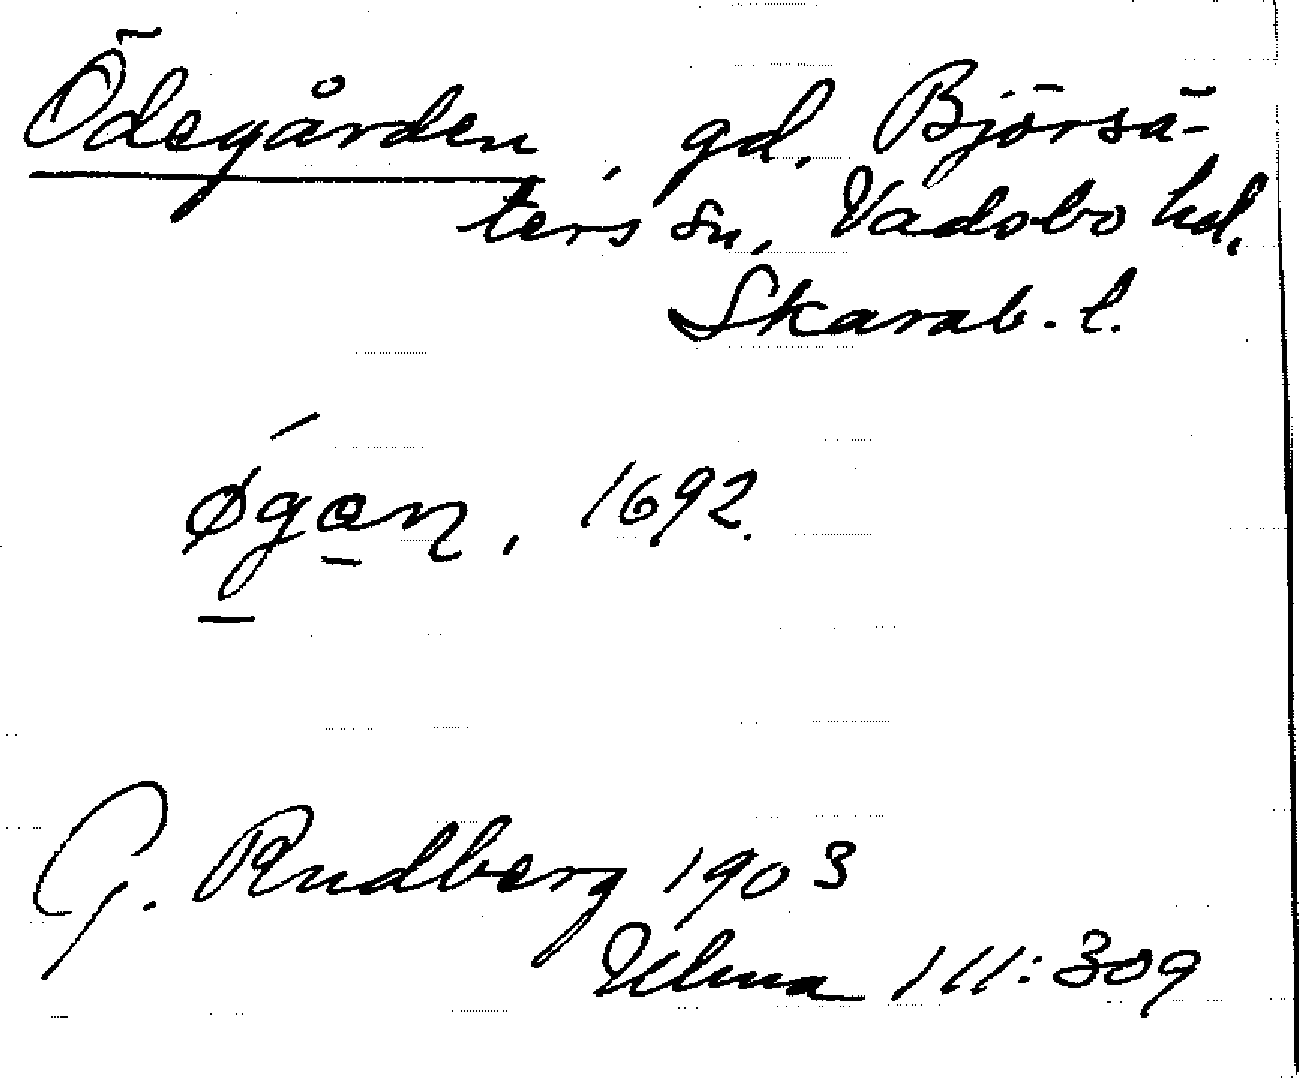 Ödegården, gd. Björsä-
ters sn, Vadsbo hd,
Skarab. l.
øgan, 1692.
G. Rudberg 1903
Ulma 111:309